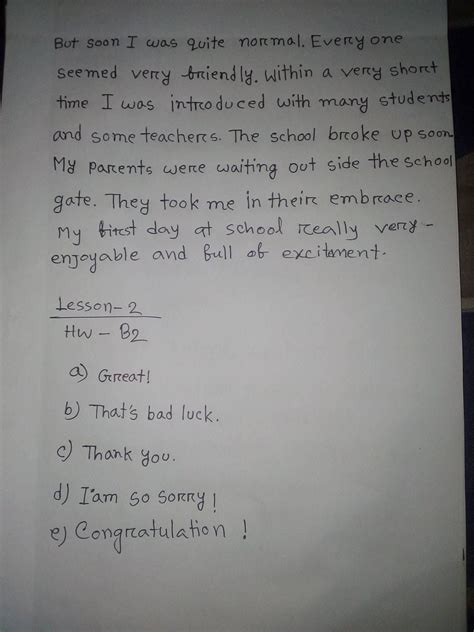 But soon I was quite normal. Every one
seemed very friendly. Within a very short
time I was introduced with many students
and some teachers. The school broke up soon
My parents were waiting out side the school
gate. They took me in their embrace.
My first day at school really very -
enjoyable and full of excitement.
Lesson-2
HW - B2
a) Great!
b) That's bad luck.
c) Thank you.
d) I'am so sorry!
e) Congratulation !